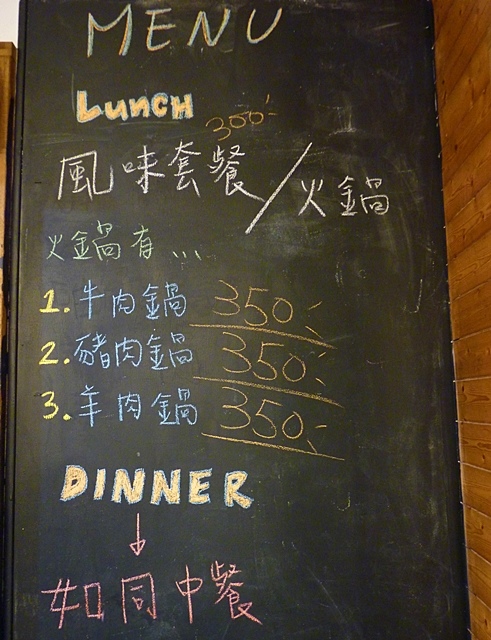 MENU
Lunch
300.-
風味套餐/火鍋
火鍋有...
1. 牛肉鍋 350.-
2. 豬肉鍋 350.-
3. 羊肉鍋 350.-
DINNER
↓
如同中餐